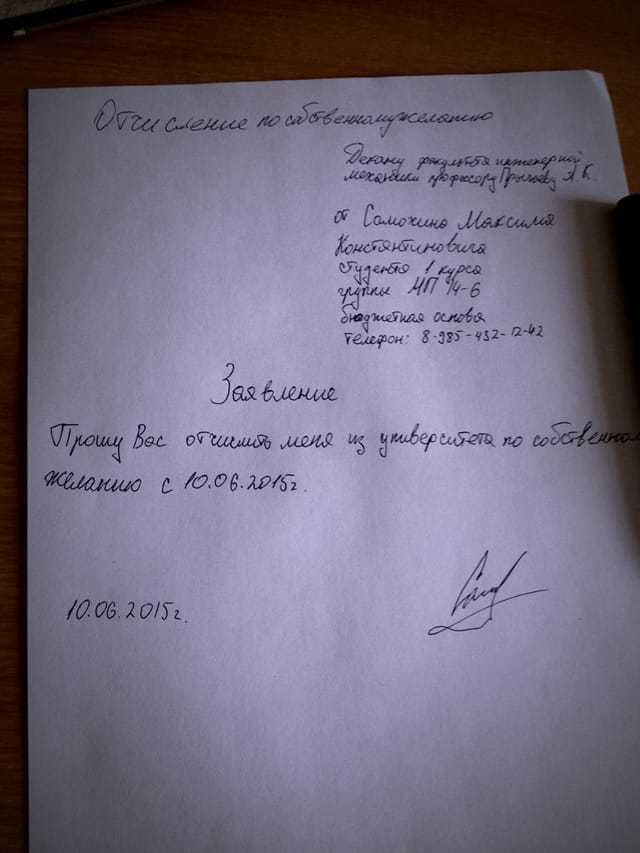 Отчисление по собственному желанию
Декану факультета инженерной
механики профессору А. К.
от Самохина Максима
Константиновича
студента 1 курса
группы МП 14-6
бюджетная основа
телефон: 8-985-432-12-42
Заявление
Прошу Вас отчислить меня из университета по собственном
желанию с 10.06.2015г.
10.06.2015г.